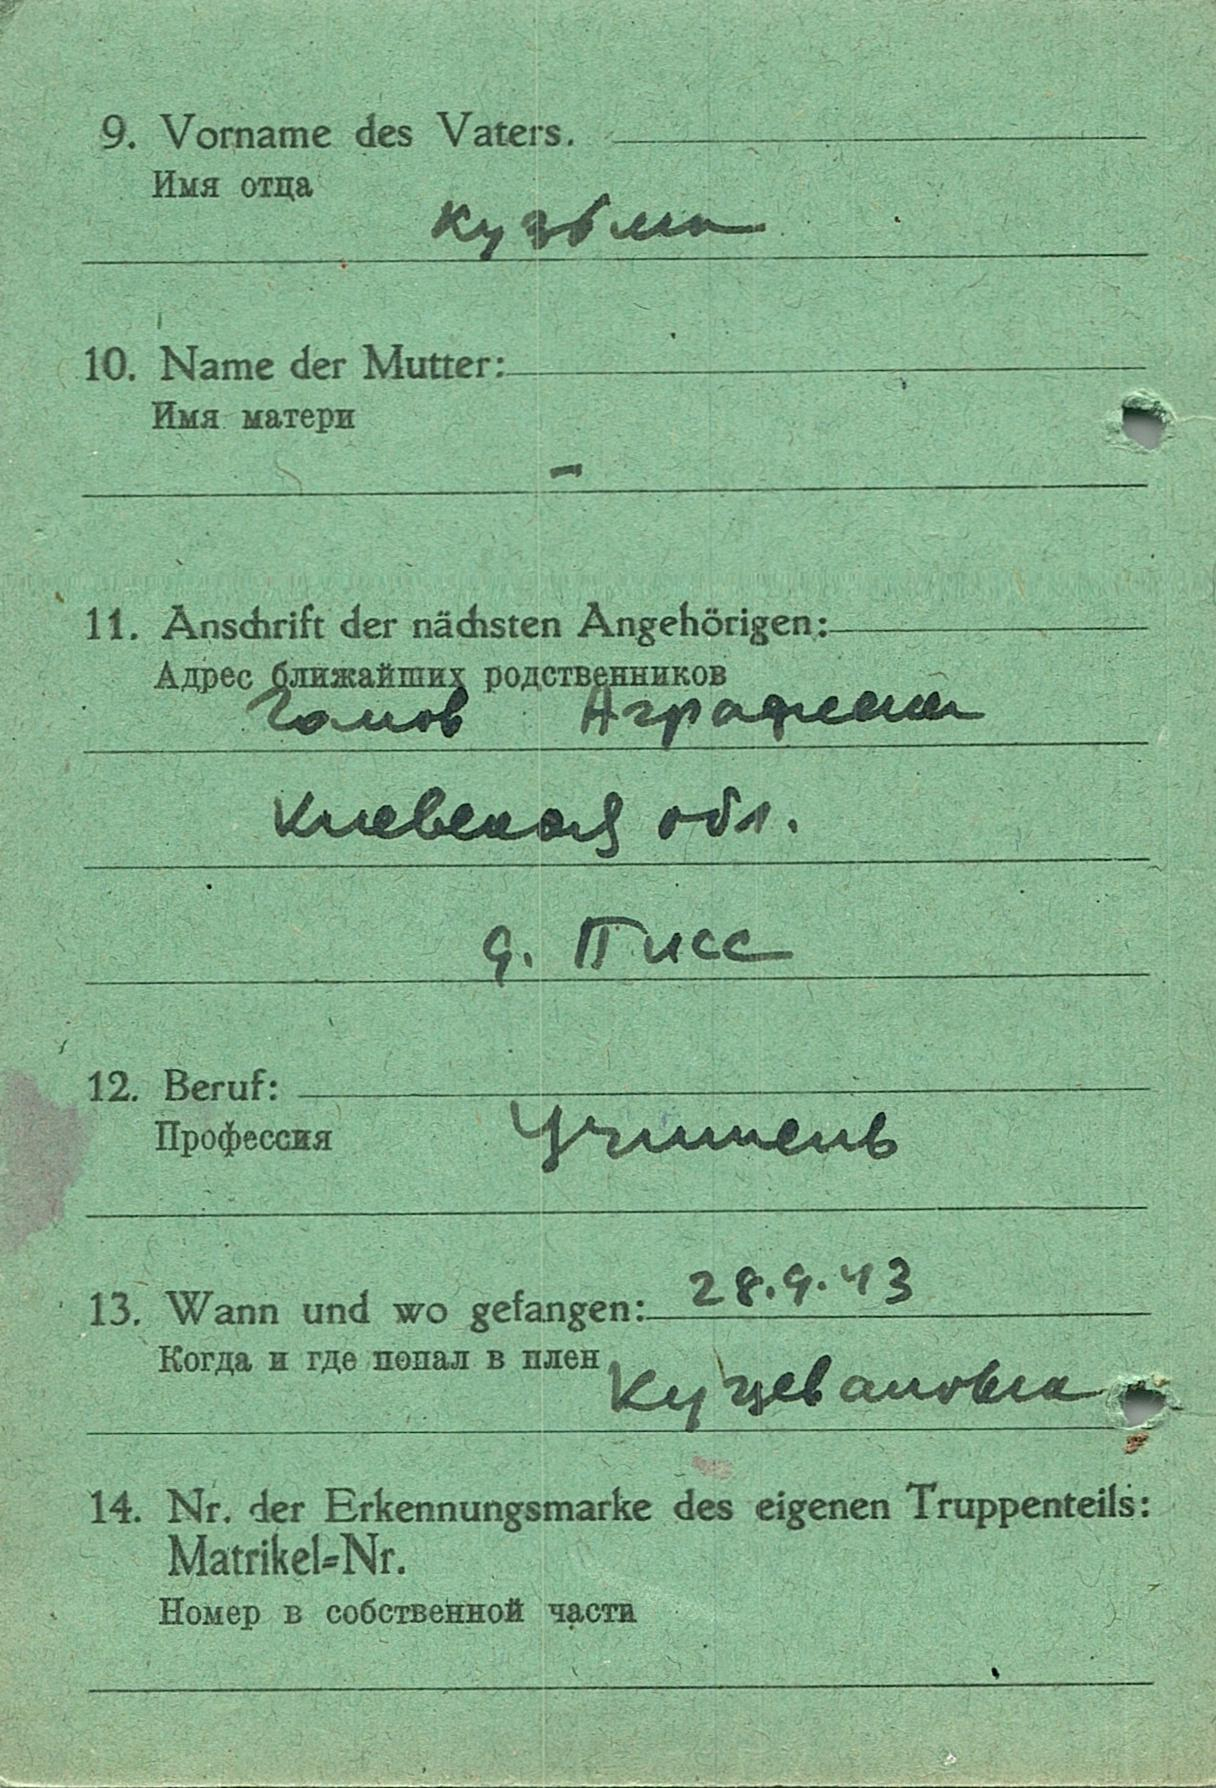 9. Vorname des Vaters.
Имя отца
Кузьма
10. Name der Mutter:
Имя матери
-
11. Anschrift der nächsten Angehörigen:
Адрес ближайших родственников
Гамов Аграфена
Киевская обл.
д. Писс
12. Beruf:
Профессия
Учитель
13. Wann und wo gefangen: 28.9.43
Когда и где попал в плен
14. Nr. der Erkennungsmarke des eigenen Truppenteils:
Matrikel=Nr.
Номер в собственной части